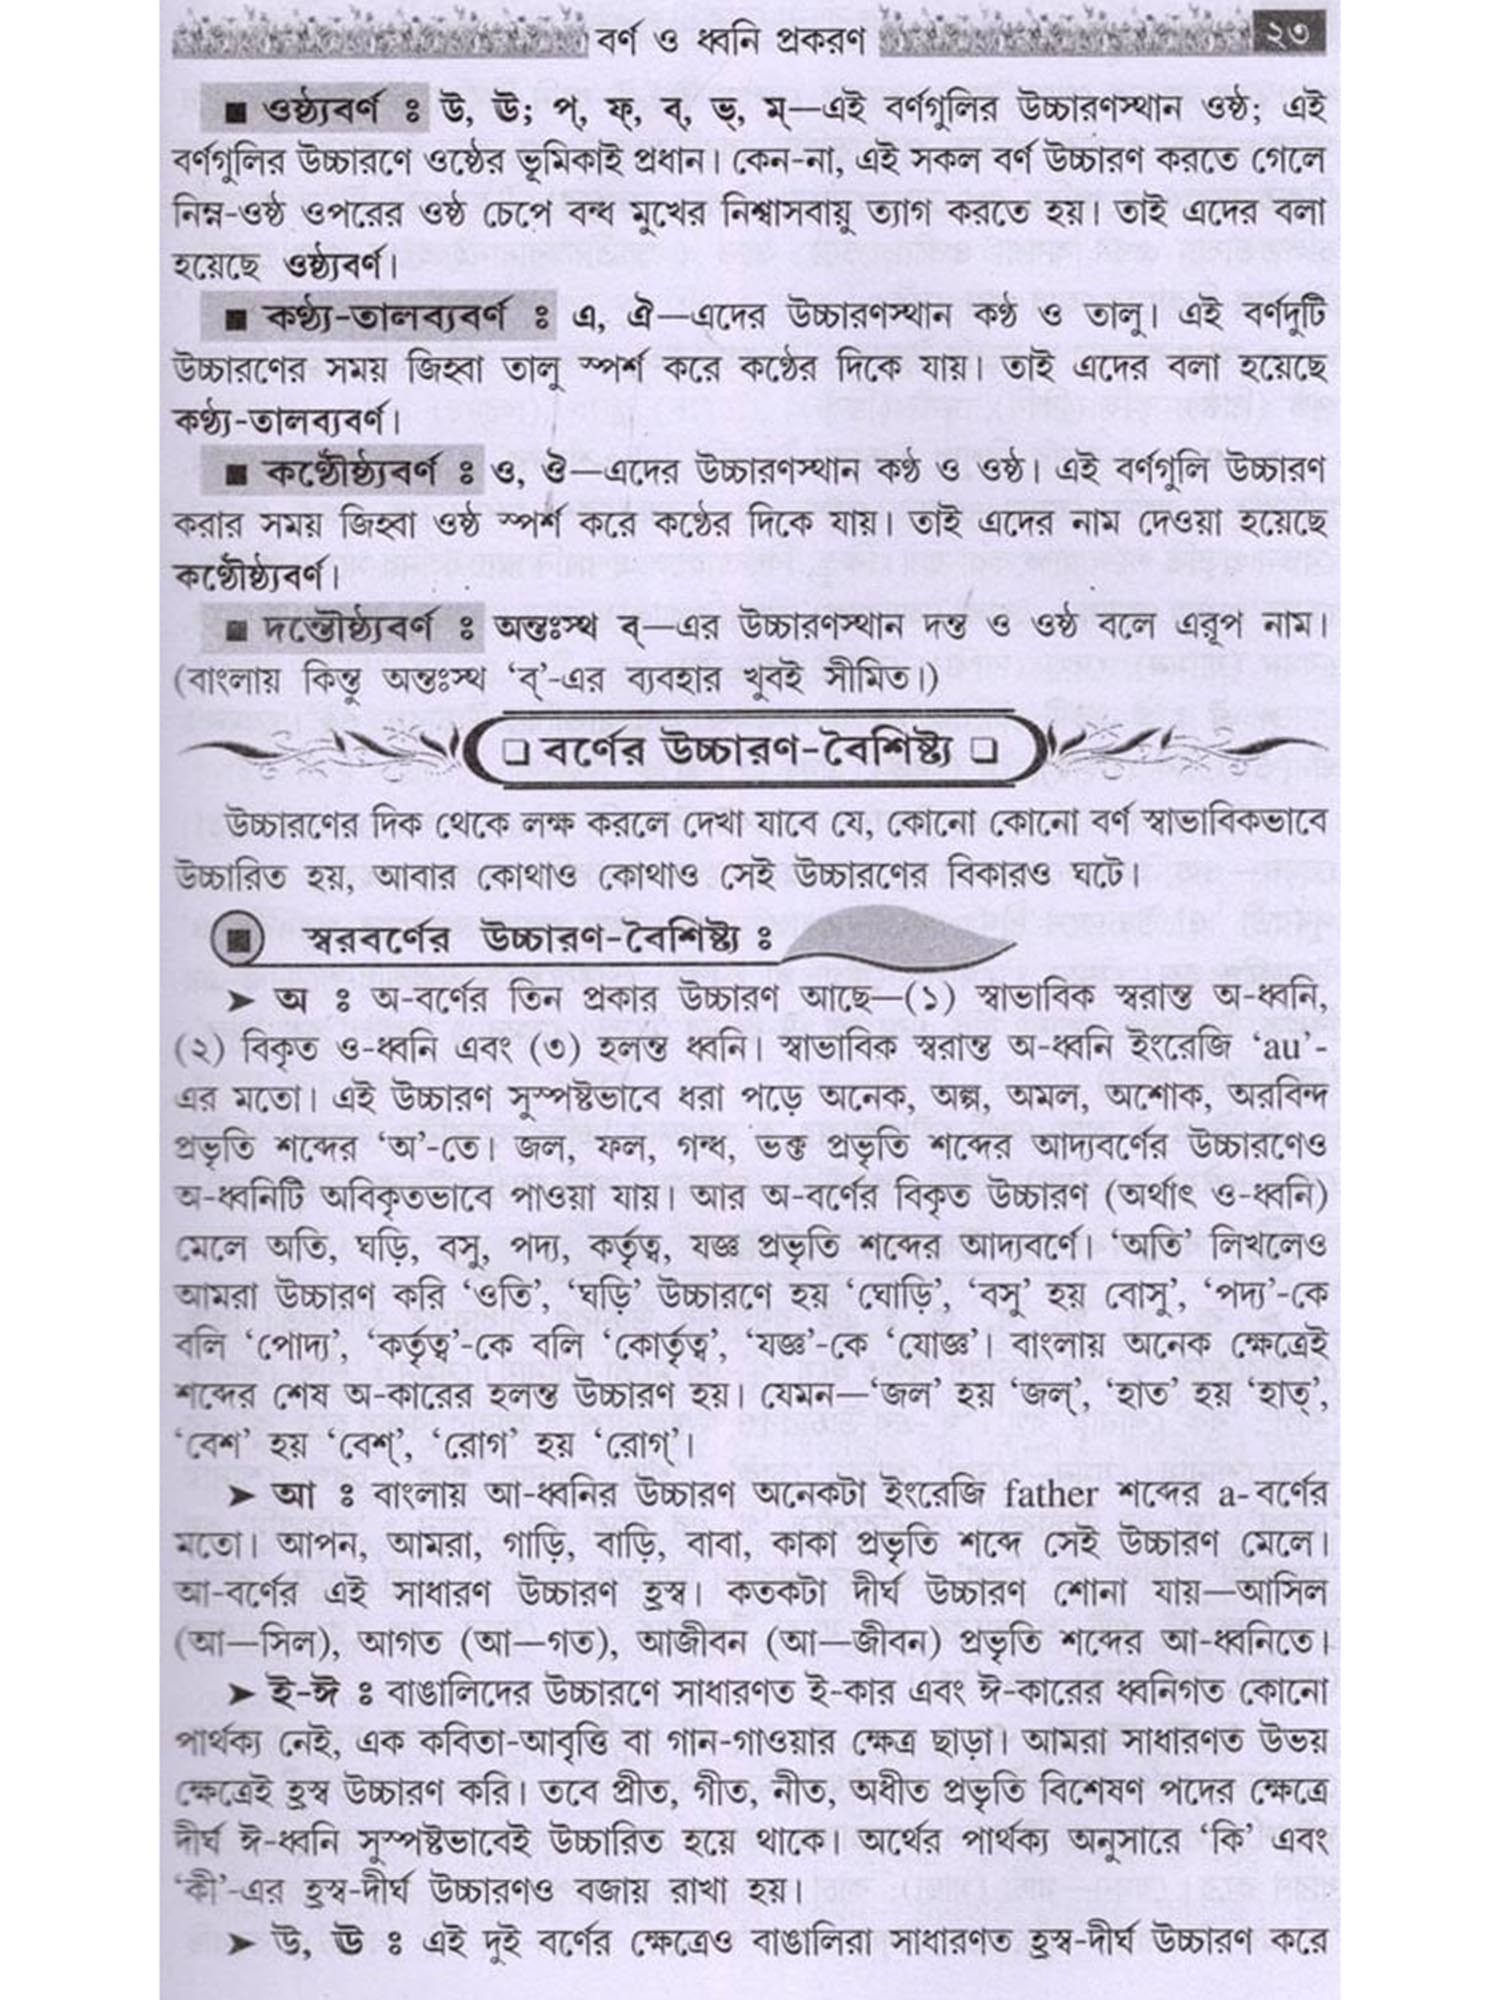 বর্ণ ও ধ্বনি প্রকরণ ২৩
■ ওষ্ঠ্যবর্ণ ঃ উ, ঊ; প্, ফ্, ব্, ভ্, ম্—এই বর্ণগুলির উচ্চারণস্থান ওষ্ঠ; এই
বর্ণগুলির উচ্চারণে ওষ্ঠের ভূমিকাই প্রধান। কেন-না, এই সকল বর্ণ উচ্চারণ করতে গেলে
নিম্ন-ওষ্ঠ ওপরের ওষ্ঠ চেপে বন্ধ মুখের নিশ্বাসবায়ু ত্যাগ করতে হয়। তাই এদের বলা
হয়েছে ওষ্ঠ্যবর্ণ।
■ কণ্ঠ্য-তালব্যবর্ণ ঃ এ, ঐ—এদের উচ্চারণস্থান কণ্ঠ ও তালু। এই বর্ণদুটি
উচ্চারণের সময় জিহ্বা তালু স্পর্শ করে কণ্ঠের দিকে যায়। তাই এদের বলা হয়েছে
কণ্ঠ্য-তালব্যবর্ণ।
■ কণ্ঠৌষ্ঠ্যবর্ণ ঃ ও, ঔ—এদের উচ্চারণস্থান কণ্ঠ ও ওষ্ঠ। এই বর্ণগুলি উচ্চারণ
করার সময় জিহ্বা ওষ্ঠ স্পর্শ করে কণ্ঠের দিকে যায়। তাই এদের নাম দেওয়া হয়েছে
কণ্ঠৌষ্ঠ্যবর্ণ।
■ দন্তৌষ্ঠ্যবর্ণ ঃ অন্তঃস্থ ব্—এর উচ্চারণস্থান দন্ত ও ওষ্ঠ বলে এরূপ নাম।
(বাংলায় কিন্তু অন্তঃস্থ ‘ব্’-এর ব্যবহার খুবই সীমিত।)
❑ বর্ণের উচ্চারণ-বৈশিষ্ট্য ❑
উচ্চারণের দিক থেকে লক্ষ করলে দেখা যাবে যে, কোনো কোনো বর্ণ স্বাভাবিকভাবে
উচ্চারিত হয়, আবার কোথাও কোথাও সেই উচ্চারণের বিকারও ঘটে।
■ স্বরবর্ণের উচ্চারণ-বৈশিষ্ট্য ঃ
➤ অ ঃ অ-বর্ণের তিন প্রকার উচ্চারণ আছে—(১) স্বাভাবিক স্বরান্ত অ-ধ্বনি,
(২) বিকৃত ও-ধ্বনি এবং (৩) হলন্ত ধ্বনি। স্বাভাবিক স্বরান্ত অ-ধ্বনি ইংরেজি ‘au’-
এর মতো। এই উচ্চারণ সুস্পষ্টভাবে ধরা পড়ে অনেক, অল্প, অমল, অশোক, অরবিন্দ
প্রভৃতি শব্দের ‘অ’-তে। জল, ফল, গন্ধ, ভক্ত প্রভৃতি শব্দের আদ্যবর্ণের উচ্চারণেও
অ-ধ্বনিটি অবিকৃতভাবে পাওয়া যায়। আর অ-বর্ণের বিকৃত উচ্চারণ (অর্থাৎ ও-ধ্বনি)
মেলে অতি, ঘড়ি, বসু, পদ্য, কর্তৃত্ব, যজ্ঞ প্রভৃতি শব্দের আদ্যবর্ণে। ‘অতি’ লিখলেও
আমরা উচ্চারণ করি ‘ওতি’, ‘ঘড়ি’ উচ্চারণে হয় ‘ঘোড়ি’, ‘বসু’ হয় বোসু’, ‘পদ্য’-কে
বলি ‘পোদ্য’, ‘কর্তৃত্ব’-কে বলি ‘কোর্তৃত্ব’, ‘যজ্ঞ’-কে ‘যোজ্ঞ’। বাংলায় অনেক ক্ষেত্রেই
শব্দের শেষ অ-কারের হলন্ত উচ্চারণ হয়। যেমন—‘জল’ হয় ‘জল্’, ‘হাত’ হয় ‘হাত্’,
‘বেশ’ হয় ‘বেশ্’, ‘রোগ’ হয় ‘রোগ্’।
➤ আ ঃ বাংলায় আ-ধ্বনির উচ্চারণ অনেকটা ইংরেজি father শব্দের a-বর্ণের
মতো। আপন, আমরা, গাড়ি, বাড়ি, বাবা, কাকা প্রভৃতি শব্দে সেই উচ্চারণ মেলে।
আ-বর্ণের এই সাধারণ উচ্চারণ হ্রস্ব। কতকটা দীর্ঘ উচ্চারণ শোনা যায়—আসিল
(আ—সিল), আগত (আ—গত), আজীবন (আ—জীবন) প্রভৃতি শব্দের আ-ধ্বনিতে।
➤ ই-ঈ ঃ বাঙালিদের উচ্চারণে সাধারণত ই-কার এবং ঈ-কারের ধ্বনিগত কোনো
পার্থক্য নেই, এক কবিতা-আবৃত্তি বা গান-গাওয়ার ক্ষেত্র ছাড়া। আমরা সাধারণত উভয়
ক্ষেত্রেই হ্রস্ব উচ্চারণ করি। তবে প্রীত, গীত, নীত, অধীত প্রভৃতি বিশেষণ পদের ক্ষেত্রে
দীর্ঘ ঈ-ধ্বনি সুস্পষ্টভাবেই উচ্চারিত হয়ে থাকে। অর্থের পার্থক্য অনুসারে ‘কি’ এবং
‘কী’-এর হ্রস্ব-দীর্ঘ উচ্চারণও বজায় রাখা হয়।
➤ উ, ঊ ঃ এই দুই বর্ণের ক্ষেত্রেও বাঙালিরা সাধারণত হ্রস্ব-দীর্ঘ উচ্চারণ করে